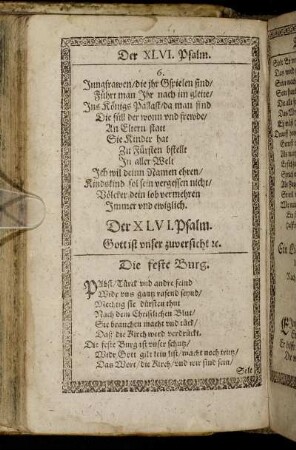 Der XLVI. Psalm.
6.
Jungfrawen / die jhr Gspielen sind /
Führt man Jhr nach inn glait /
Ins Königs Pallast / da man find
Die füll der wonn vnd frewde /
An Eltern statt
Sie Kinder hat
Zu Fürsten bstellt
In aller Welt
Ich wil deinn Namen ehren /
Kindskind sol sein vergessen nicht /
Völcker dein lob vermehren
Immer vnd ewiglich.
Der XLVI. Psalm.
Gott ist vnser zuversicht ꝛc.
Die feste Burg.
PApst / Türck vnd andre feind
Wide vns gantz rasend seynd /
Mechtig sie dürsten thut
Nach dem Christlichen Blut /
Sie brauchen macht vnd tück /
Daß die Kirch werd verdrückt.
Die feste Burg ist vnser schutz /
Wide Gott gilt kein list / macht noch trutz /
Das Wort / die Kirch / vnd wir sind sein /
Sele